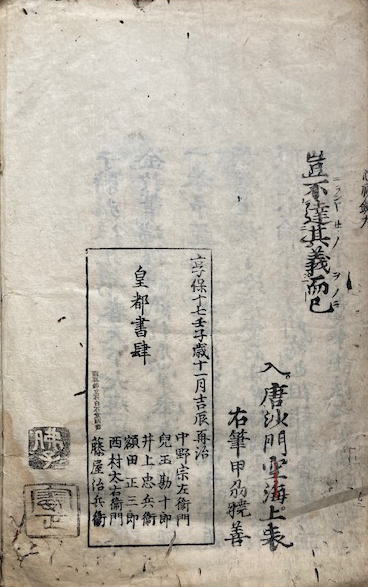 豈不達其義而已
入唐沙門空海上表
右筆甲刕暁善
享保十七壬子歳十一月吉辰再治
皇都書肆
中野宗左衛門
兒玉勘十郎
井上忠兵衛
額田正三郎
西村太右衛門
藤屋治兵衛